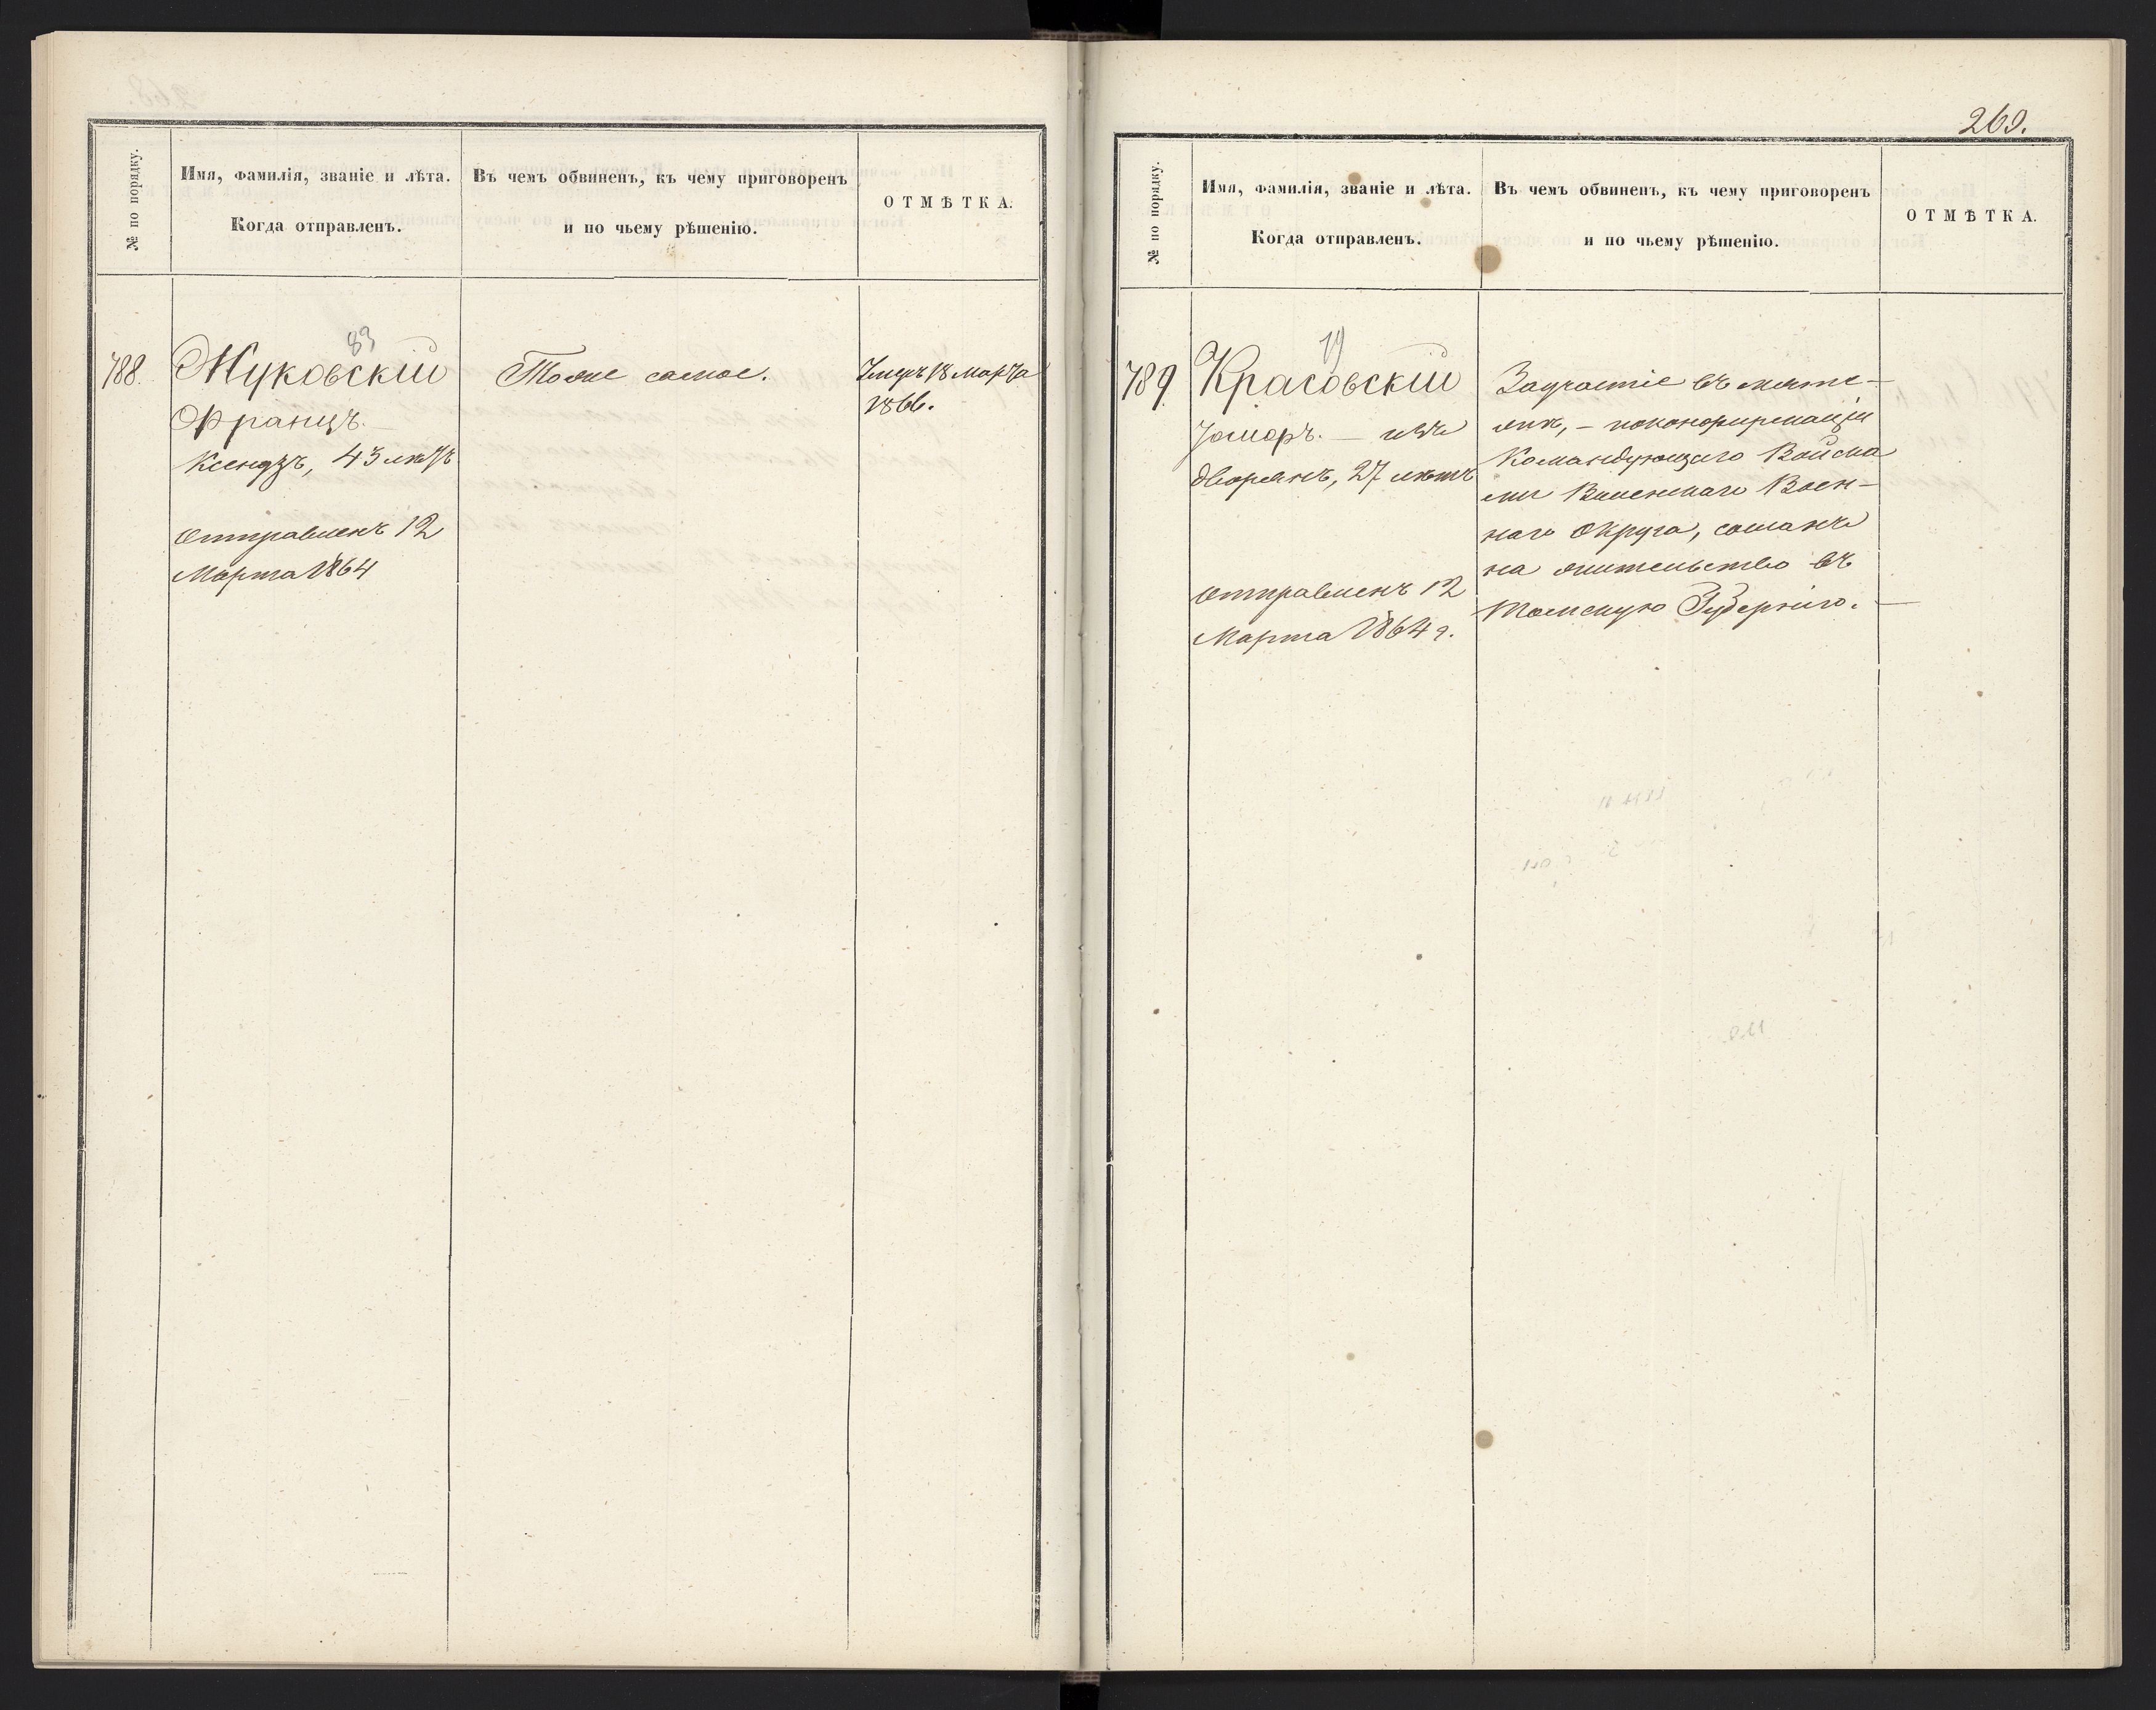 № по порядку.
Имя, фамилія, званіе и лѣта.
Когда отправленъ.
Въ чемъ обвиненъ, къ чему приговоренъ
и по чьему рѣшенію.
ОТМѢТКА.
83
788.
Жуковскій
Францъ. —
Ксендзъ, 43 лѣтъ
Отправленъ 12
Марта 1864
Тоже самое.
Умеръ 18 Марта
1866.
269.
№ по порядку.
Имя, фамилія, званіе и лѣта.
Когда отправленъ.
Въ чемъ обвиненъ, къ чему приговоренъ
и по чьему рѣшенію.
ОТМѢТКА.
19
789
Красовскій
— изъ
дворянъ, 27 лѣтъ
Отправленъ 12
Марта 1864 г.
За участіе въ мяте-
жѣ, — по конфирмаціи
Командующаго Войска
ми Виленскаго Воен-
наго Округа, сосланъ
на жительство въ
Томскую Губернію. —